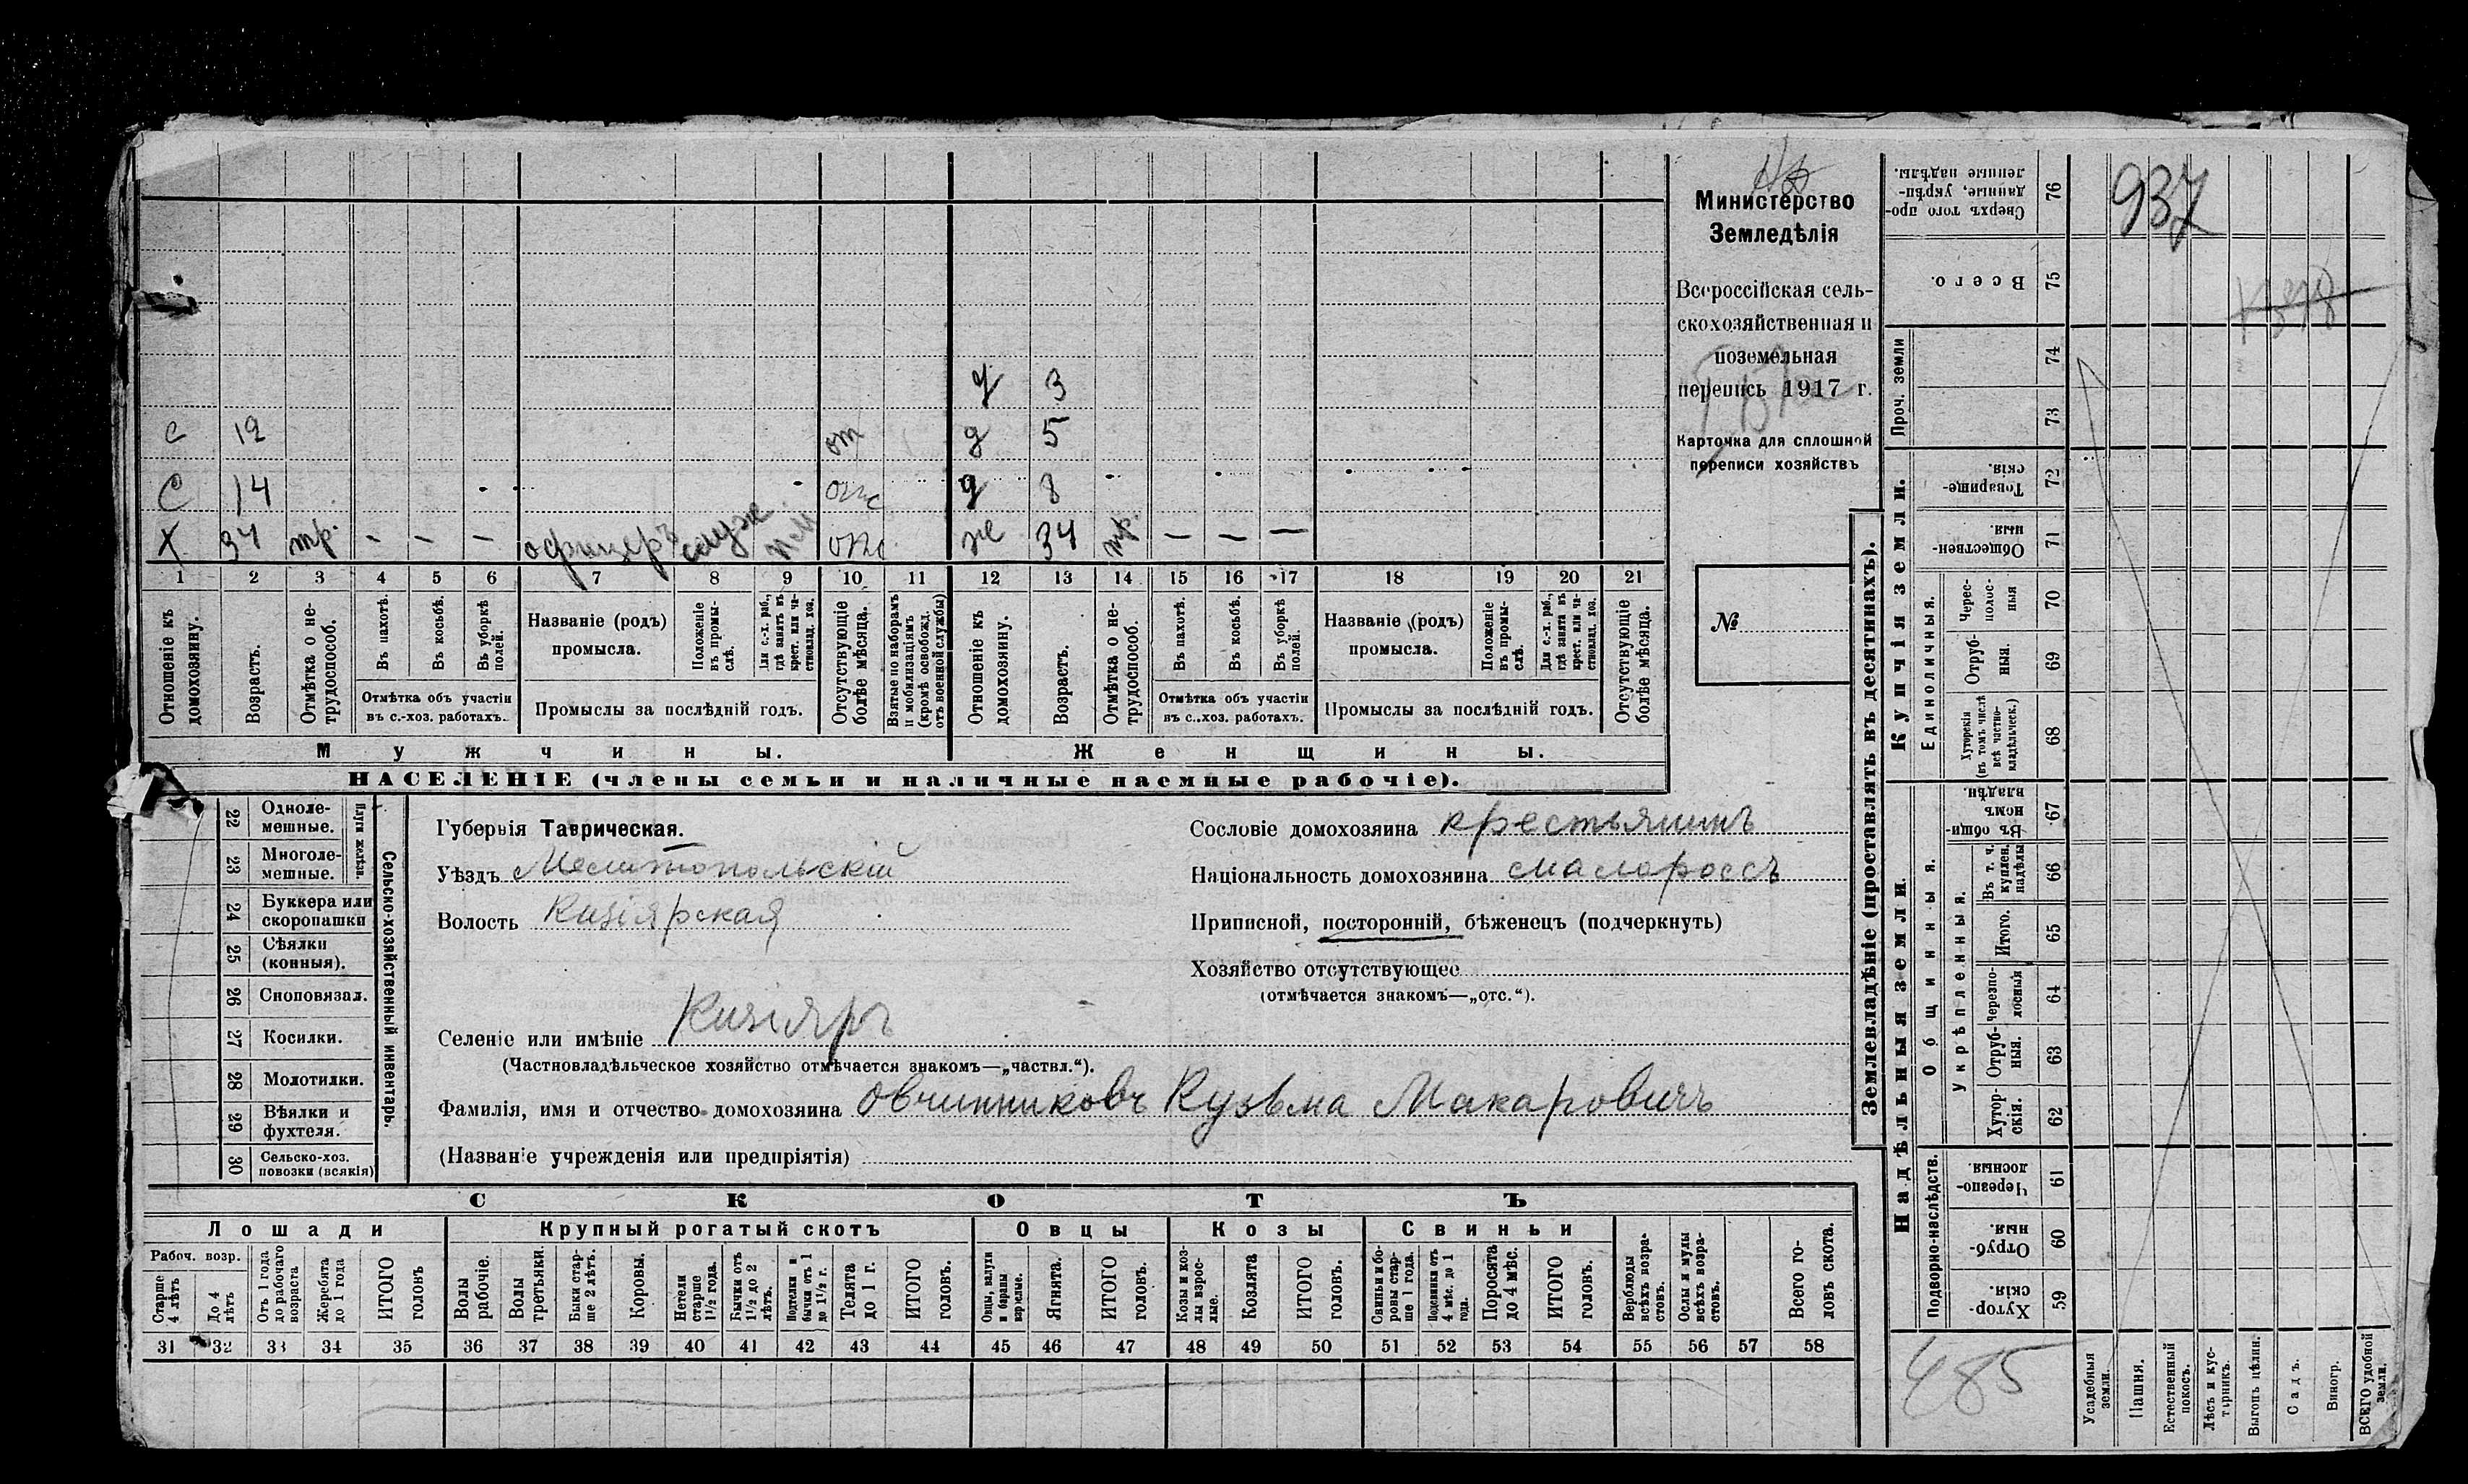 с 12 от
С 14 отс
Х 34 тр. - - - офицеръ служ отс
д 3
д 5
д 8
ж 34 тр. — — —
1 2 3 4 5 6 7 8 9 10 11 12 13 14 15 16 17 18 19 20 21
Отношеніе къ домохозяину.
Возрастъ.
Отмѣтка о не-трудоспособ.
Въ пахотѣ.
Въ косьбѣ.
Въ уборкѣ полей.
Отмѣтка объ участіи
въ с.-хоз. работахъ.
Названіе (родъ)
промысла.
Положеніе въ промы-слѣ.
Для с.-х. раб., гдѣ занятъ въ крест. или ча-стновлад. хоз.
Промыслы за послѣдній годъ.
Отсутствующіе болѣе мѣсяца.
Взятые по наборамъ и мобилизаціямъ (кромѣ освобожд. отъ военной службы)
Отношеніе къ домохозяину.
Возрастъ.
Отмѣтка о не-трудоспособ.
Въ пахотѣ.
Въ косьбѣ.
Въ уборкѣ полей.
Отмѣтка объ участіи
въ с..хоз. работахъ.
Названіе (родъ)
промысла.
Положеніе въ промы-слѣ.
Для с.-х. раб., гдѣ занята въ крест. или ча-стновлад. хоз.
Промыслы за послѣдній годъ.
Отсутствующіе болѣе мѣсяца.
Мужчины.
Женщины.
НАСЕЛЕНІЕ (члены семьи и наличные наемные рабочіе).
Министерство
Земледѣлія
Всероссійская сель-
скохозяйственная и
поземельная
перепись 1917 г.
Карточка для сплошной
переписи хозяйствъ
№
22 Одноле-мешные.
23 Многоле-мешные.
Плуги желѣзн.
24 Буккера или скоропашки
25 Сѣялки (конныя).
26 Сноповязал.
27 Косилки.
28 Молотилки.
29 Вѣялки и фухтеля.
30 Сельско-хоз. повозки (всякія)
Сельско-хозяйственный инвентарь.
Губернія Таврическая.
Уѣздъ Мелитопольскій
Волость Кизіярская
Селеніе или имѣніе Кизіяръ
(Частновладѣльческое хозяйство отмѣчается знакомъ—„частвл.“).
Фамилія, имя и отчество домохозяина Овчинниковъ Кузьма Макаровичъ
(Названіе учрежденія или предпріятія)
Сословіе домохозяина крестьянинъ
Національность домохозяина малороссъ
Приписной, посторонній, бѣженецъ (подчеркнуть)
Хозяйство отсутствующее
(отмѣчается знакомъ—„отс.“).
СКОТЪ
Лошади Крупный рогатый скотъ Овцы Козы Свиньи
Рабоч. возр.
Старше 4 лѣтъ
До 4 лѣтъ
Отъ 1 года до рабочаго возраста
Жеребята до 1 года
ИТОГО головъ
Волы рабочіе.
Волы третьяки.
Быки стар-ше 2 лѣтъ.
Коровы.
Нетели старше 1½ года.
Бычки отъ 1½ до 2 лѣтъ.
Подтелки и бычки отъ 1 до 1½ г.
Телята до 1 г.
ИТОГО головъ.
Овцы, валухи и бараны взрослые.
Ягнята.
ИТОГО головъ.
Козы и коз-лы взрос-лые.
Козлята
ИТОГО головъ.
Свиньи и бо-ровы стар-ше 1 года.
Подсвинки отъ 4 мѣс. до 1 года.
Поросята до 4 мѣс.
ИТОГО головъ.
Верблюды всѣхъ возра-стовъ.
Ослы и мулы всѣхъ возра-стовъ.
Всего го-ловъ скота.
31 32 33 34 35 36 37 38 39 40 41 42 43 44 45 46 47 48 49 50 51 52 53 54 55 56 57 58
Землевладѣніе (проставлять въ десятинахъ).
Купчія земли.
Надѣльныя земли.
Сверхъ того про-данные, укрѣп-ленные надѣлы. 76
Всего. 75
Проч. земли 74 73
Товарище-скія. 72
Обществен-ныя. 71
Единоличныя.
Черес-полос-ныя 70
Отруб-ныя. 69
Хуторскія (въ томъ числѣ всѣ частно-владѣльческ.) 68
Общинныя.
Въ общи-номъ владѣн. 67
Укрѣпленныя.
Въ т. ч. куплен. надѣлы 66
Итого. 65
Черезпо-лосныя 64
Отруб-ныя. 63
Хутор-скія. 62
Подворно-наслѣдств.
Черезпо-лосныя. 61
Отруб-ныя. 60
Хутор-скія. 59
937
485
Усадебныя земли.
Пашня.
Естественный покосъ.
Лѣсъ и кус-тарникъ.
Выгонъ цѣлин.
Садъ.
Виногр.
ВСЕГО удобной земли.